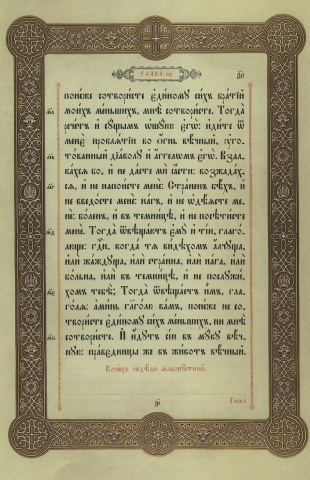 ГЛАВА
понеже сотвористе єдиному сихъ братїй
моихъ меньшихъ, мнѣ сотвористе. Тогда
речетъ и сущымъ ѡшуюю єгѡ: идите ѿ
менє проклѧтїи во ѻгнь вѣчный, оуго-
тованный дїаволу и аггелѡмъ єгѡ. Взал-
кахсѧ бо, и не дасте ми ꙗсти: возжадах-
сѧ, и не напоисте менє: Страненъ бѣхъ, и
не введосте менє: нагъ, и не ѡдѣѧсте ме-
нє: боленъ, и въ темницѣ, и не посѣтисте
менє. Тогда ѿвѣщаютъ єму и тїи, глаго-
люще: гдⷭ҇и, когда тѧ видѣхомъ алчуща,
или жаждуща, или странна, или нага, или
больна, или въ темницѣ, и не послужи-
хомъ тебѣ; Тогда ѿвѣщаетъ имъ, гла-
голѧ: аминь глаголю вамъ, понеже не со-
твористе єдиному сихъ меньшихъ, ни мнѣ
сотвористе. И идутъ сїи въ муку вѣч-
ную: праведницы же въ животъ вѣчный.
Конецъ недѣли мѧсопустной.
Глава